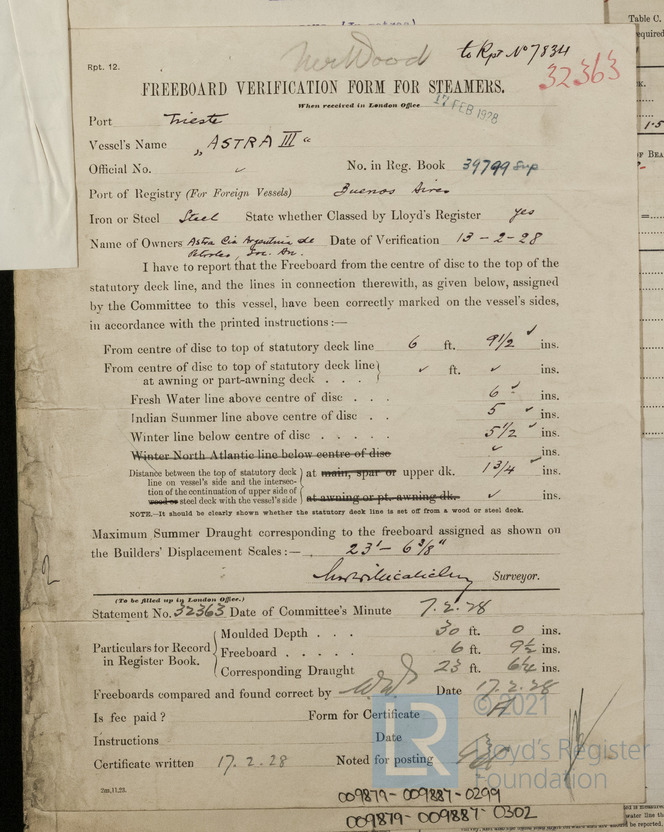 Table C.
to Rpt No 7834
Rpt. 12.
32363
FREEBOARD VERIFICATION FORM FOR STEAMERS.
When received in London Office 17 FEB 1928
Port Trieste
Vessel's Name "ASTRA III"
Official No. ✓ No. in Reg. Book 39799 Sup
Port of Registry (For Foreign Vessels) Buenos Aires
Iron or Steel Steel State whether Classed by Lloyd's Register yes
Name of Owners Astra Cia Argentina de Date of Verification 13-2-28
Petroleo, Soc. An.
I have to report that the Freeboard from the centre of disc to the top of the
statutory deck line, and the lines in connection therewith, as given below, assigned
by the Committee to this vessel, have been correctly marked on the vessel's sides,
in accordance with the printed instructions:—
From centre of disc to top of statutory deck line 6 ft. 9 1/2 ✓ ins.
From centre of disc to top of statutory deck line
at awning or part-awning deck . . . ✓ ft. ✓ ins.
Fresh Water line above centre of disc . . . 6 ✓ ins.
Indian Summer line above centre of disc . . 5 ✓ ins.
Winter line below centre of disc . . . . . 5 1/2 ✓ ins.
Winter North Atlantic line below centre of disc ✓ ins.
Distance between the top of statutory deck
line on vessel's side and the intersec-
tion of the continuation of upper side of
wood or steel deck with the vessel's side
at main, spar or upper dk. 1 3/4 ✓ ins.
at awning or pt. awning dk. ✓ ins.
NOTE.—It should be clearly shown whether the statutory deck line is set off from a wood or steel deck.
Maximum Summer Draught corresponding to the freeboard assigned as shown on
the Builders' Displacement Scales:— . 23' - 6 3/8"
Surveyor.
(To be filled up in London Office.)
Statement No. 32363 Date of Committee's Minute 7.2.28
Particulars for Record
in Register Book.
Moulded Depth . . . 30 ft. 0 ins.
Freeboard . . . . . 6 ft. 9 1/2 ins.
Corresponding Draught 23 ft. 6 1/4 ins.
Freeboards compared and found correct by Date 17.2.28
Is fee paid? Form for Certificate A
Instructions Date
Certificate written 17.2.28 Noted for posting
2m,11,23.
LR
© 2021
Lloyd's Register
Foundation
009879-009887-0299
009879-009887-0302